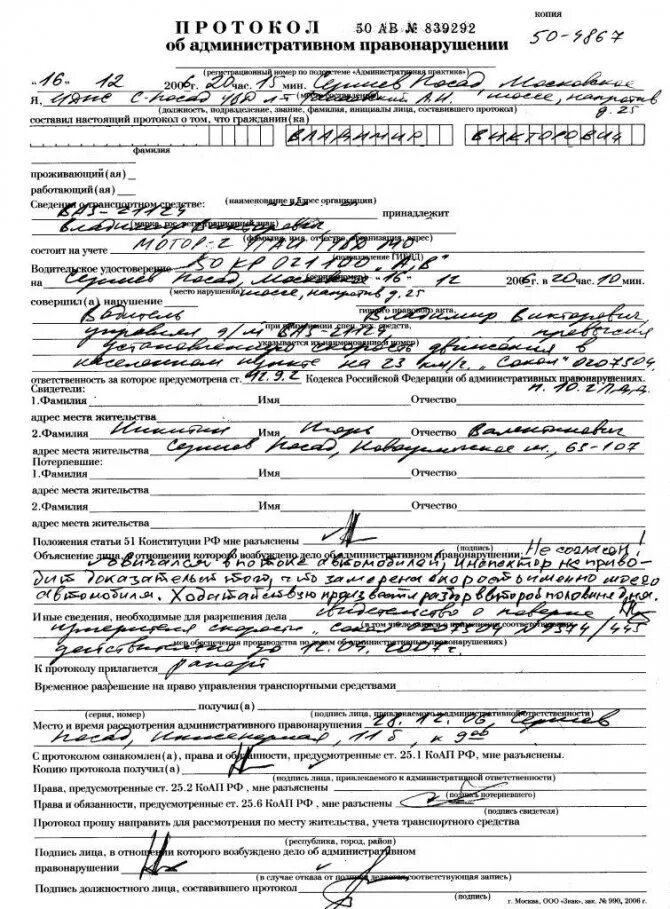 копия
ПРОТОКОЛ 50 АВ № 839292
об административном правонарушении 50-4867
(регистрационный номер по подсистеме «Административная практика»)
"16" 12 2006 г. 20 час. 15 мин. Сергиев Посад, Московское
Я, С-Посад шоссе, напротив
(должность, подразделение, звание, фамилия, инициалы лица, составившего протокол) д. 25
составил настоящий протокол о том, что гражданин(ка)
ВЛАДИМИР ВИКТОРОВИЧ
фамилия
проживающий(ая)
работающий(ая)
(наименование и адрес организации)
Сведения о транспортном средстве:
ВАЗ-21124 принадлежит
(марка, гос. регистрационный знак)
Владимир Викторович
(фамилия, имя, отчество, организация, адрес)
состоит на учете МОТОР-2 ГАИ МО
(подразделение ГИБДД)
Водительское удостоверение 50 КР 021700 "А,В"
на Сергиев Посад, Московское "16" 12 2006 г. в 20 час. 10 мин.
(место нарушения) шоссе, напротив д. 25
совершил(а) нарушение
Водитель Владимир Викторович,
управлял а/м ВАЗ-21124, превысил
при применении спец. тех. средств,
указывается их наименование и номер)
установленную скорость движения в
населенном пункте на 23 км/ч. "Сокол" 0207504
ответственность за которое предусмотрена ст. 12.9.2 Кодекса Российской Федерации об административных правонарушениях.
Свидетели: п. 10.2 ПДД
1.Фамилия Имя Отчество
адрес места жительства
2.Фамилия Никитин Игорь Имя Отчество Валентинович
адрес места жительства Сергиев Посад, Новоугличское ш., 65-107
Потерпевшие:
1.Фамилия Имя Отчество
адрес места жительства
2.Фамилия Имя Отчество
адрес места жительства
Положения статьи 51 Конституции РФ мне разъяснены
(подпись)
Объяснение лица, в отношении которого возбуждено дело об административном правонарушении: Не согласен!
Двигался в потоке автомобилей, инспектор не приво-
дит доказательств того, что замерена скорость именно моего
автомобиля. Ходатайствую произвести разбор в второй половине дня.
Иные сведения, необходимые для разрешения дела свидетельство о поверке
измерителя скорости "Сокол" 0207504 № 7374/445
действительно до 12.07.2007г.
К протоколу прилагается рапорт
Временное разрешение на право управления транспортными средствами
получил(а)
(серия, номер) (подпись лица, привлекаемого к административной ответственности)
Место и время рассмотрения административного правонарушения 28.12.06, Сергиев
Посад, Инженерная, 11б, к 9 00
С протоколом ознакомлен(а), права и обязанности, предусмотренные ст. 25.1 КоАП РФ, мне разъяснены.
Копию протокола получил(а)
(подпись лица, привлекаемого к административной ответственности)
Права, предусмотренные ст. 25.2 КоАП РФ, мне разъяснены
(подпись потерпевшего)
Права и обязанности, предусмотренные ст. 25.6 КоАП РФ, мне разъяснены
(подпись свидетеля)
Протокол прошу направить для рассмотрения по месту жительства, учета транспортного средства
(республика, город, район)
Подпись лица, в отношении которого возбуждено дело об административном
правонарушении
(в случае отказа от подписи делается соответствующая запись)
Подпись должностного лица, составившего протокол
(подпись)
г. Москва, ООО «Знак», зак. № 990, 2006 г.